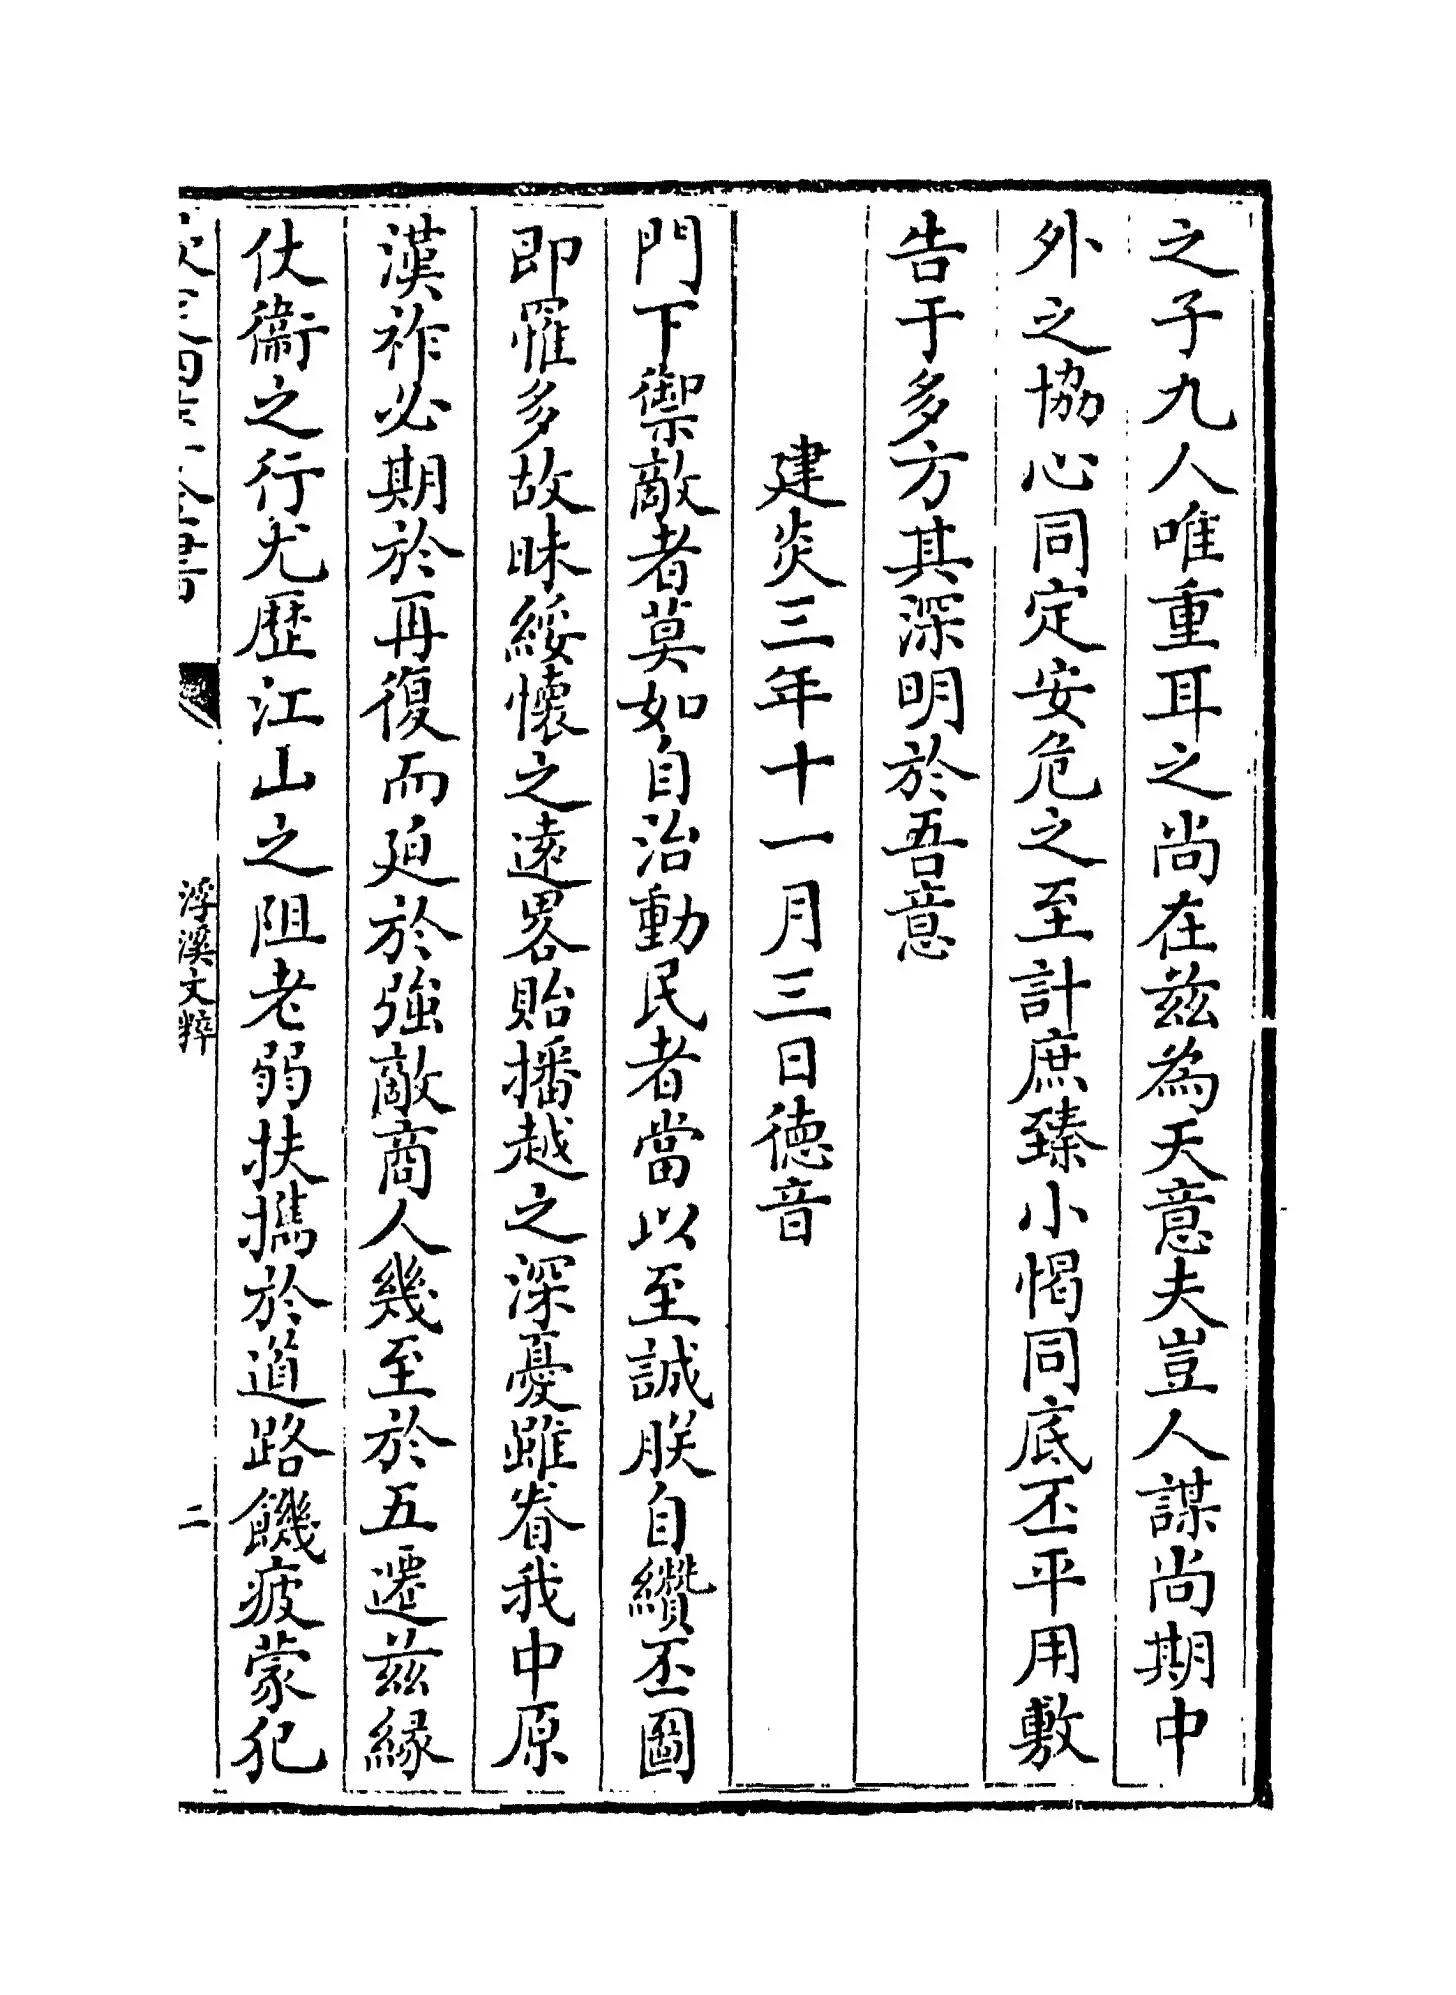 之子九人唯重耳之尚在茲為天意夫豈人謀尚期中
外之協心同定安危之至計庶臻小愒同底丕平用敷
告于多方其深明於吾意
建炎三年十一月三日德音
門下禦敵者莫如自治動民者當以至誠朕自纘丕圖
即罹多故昧綏懷之遠畧貽播越之深憂雖眷我中原
漢祚必期於再復而廹於強敵商人幾至於五遷茲緣
仗衞之行尤歷江山之阻老弱扶攜於道路饑疲蒙犯
欽定四庫全書
浮溪文粹
二